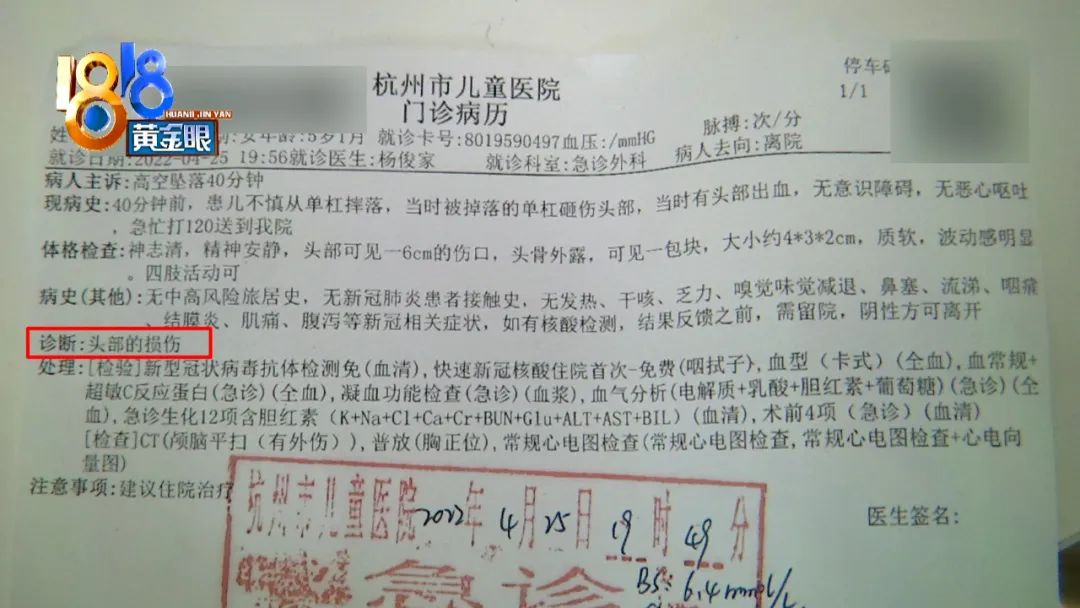 1818
HUANG JIN YAN
黄金眼
杭州市儿童医院
停车
门诊病历
1/1
年龄:5岁1月 就诊卡号:8019590497血压:/mmHG 脉搏:次/分
就诊日期:2022-04-25 19:56就诊医生:杨俊家 就诊科室:急诊外科 病人去向:离院
病人主诉:高空坠落40分钟
现病史:40分钟前，患儿不慎从单杠摔落，当时被掉落的单杠砸伤头部，当时有头部出血，无意识障碍，无恶心呕吐
，急忙打120送到我院
体格检查:神志清，精神安静，头部可见一6cm的伤口，头骨外露，可见一包块，大小约4*3*2cm，质软，波动感明显
。四肢活动可
病史(其他):无中高风险旅居史，无新冠肺炎患者接触史，无发热、干咳、乏力、嗅觉味觉减退、鼻塞、流涕、咽痛
、结膜炎、肌痛、腹泻等新冠相关症状，如有核酸检测，结果反馈之前，需留院，阴性方可离开
诊断:头部的损伤
处理:[检验]新型冠状病毒抗体检测免(血清),快速新冠核酸住院首次-免费(咽拭子},血型（卡式）(全血),血常规+
超敏C反应蛋白(急诊)(全血),凝血功能检查(急诊)(血浆),血气分析(电解质+乳酸+胆红素+葡萄糖)(急诊)(全
血),急诊生化12项含胆红素（K+Na+Cl+Ca+Cr+BUN+Glu+ALT+AST+BIL）(血清),术前4项（急诊）(血清)
[检查]CT(颅脑平扫（有外伤）),普放(胸正位),常规心电图检查(常规心电图检查,常规心电图检查+心电向
量图)
注意事项:建议住院治疗
医生签名:
杭州市儿童医院2022年4月25日19时49分
急诊
BS: 6.4mmol/L